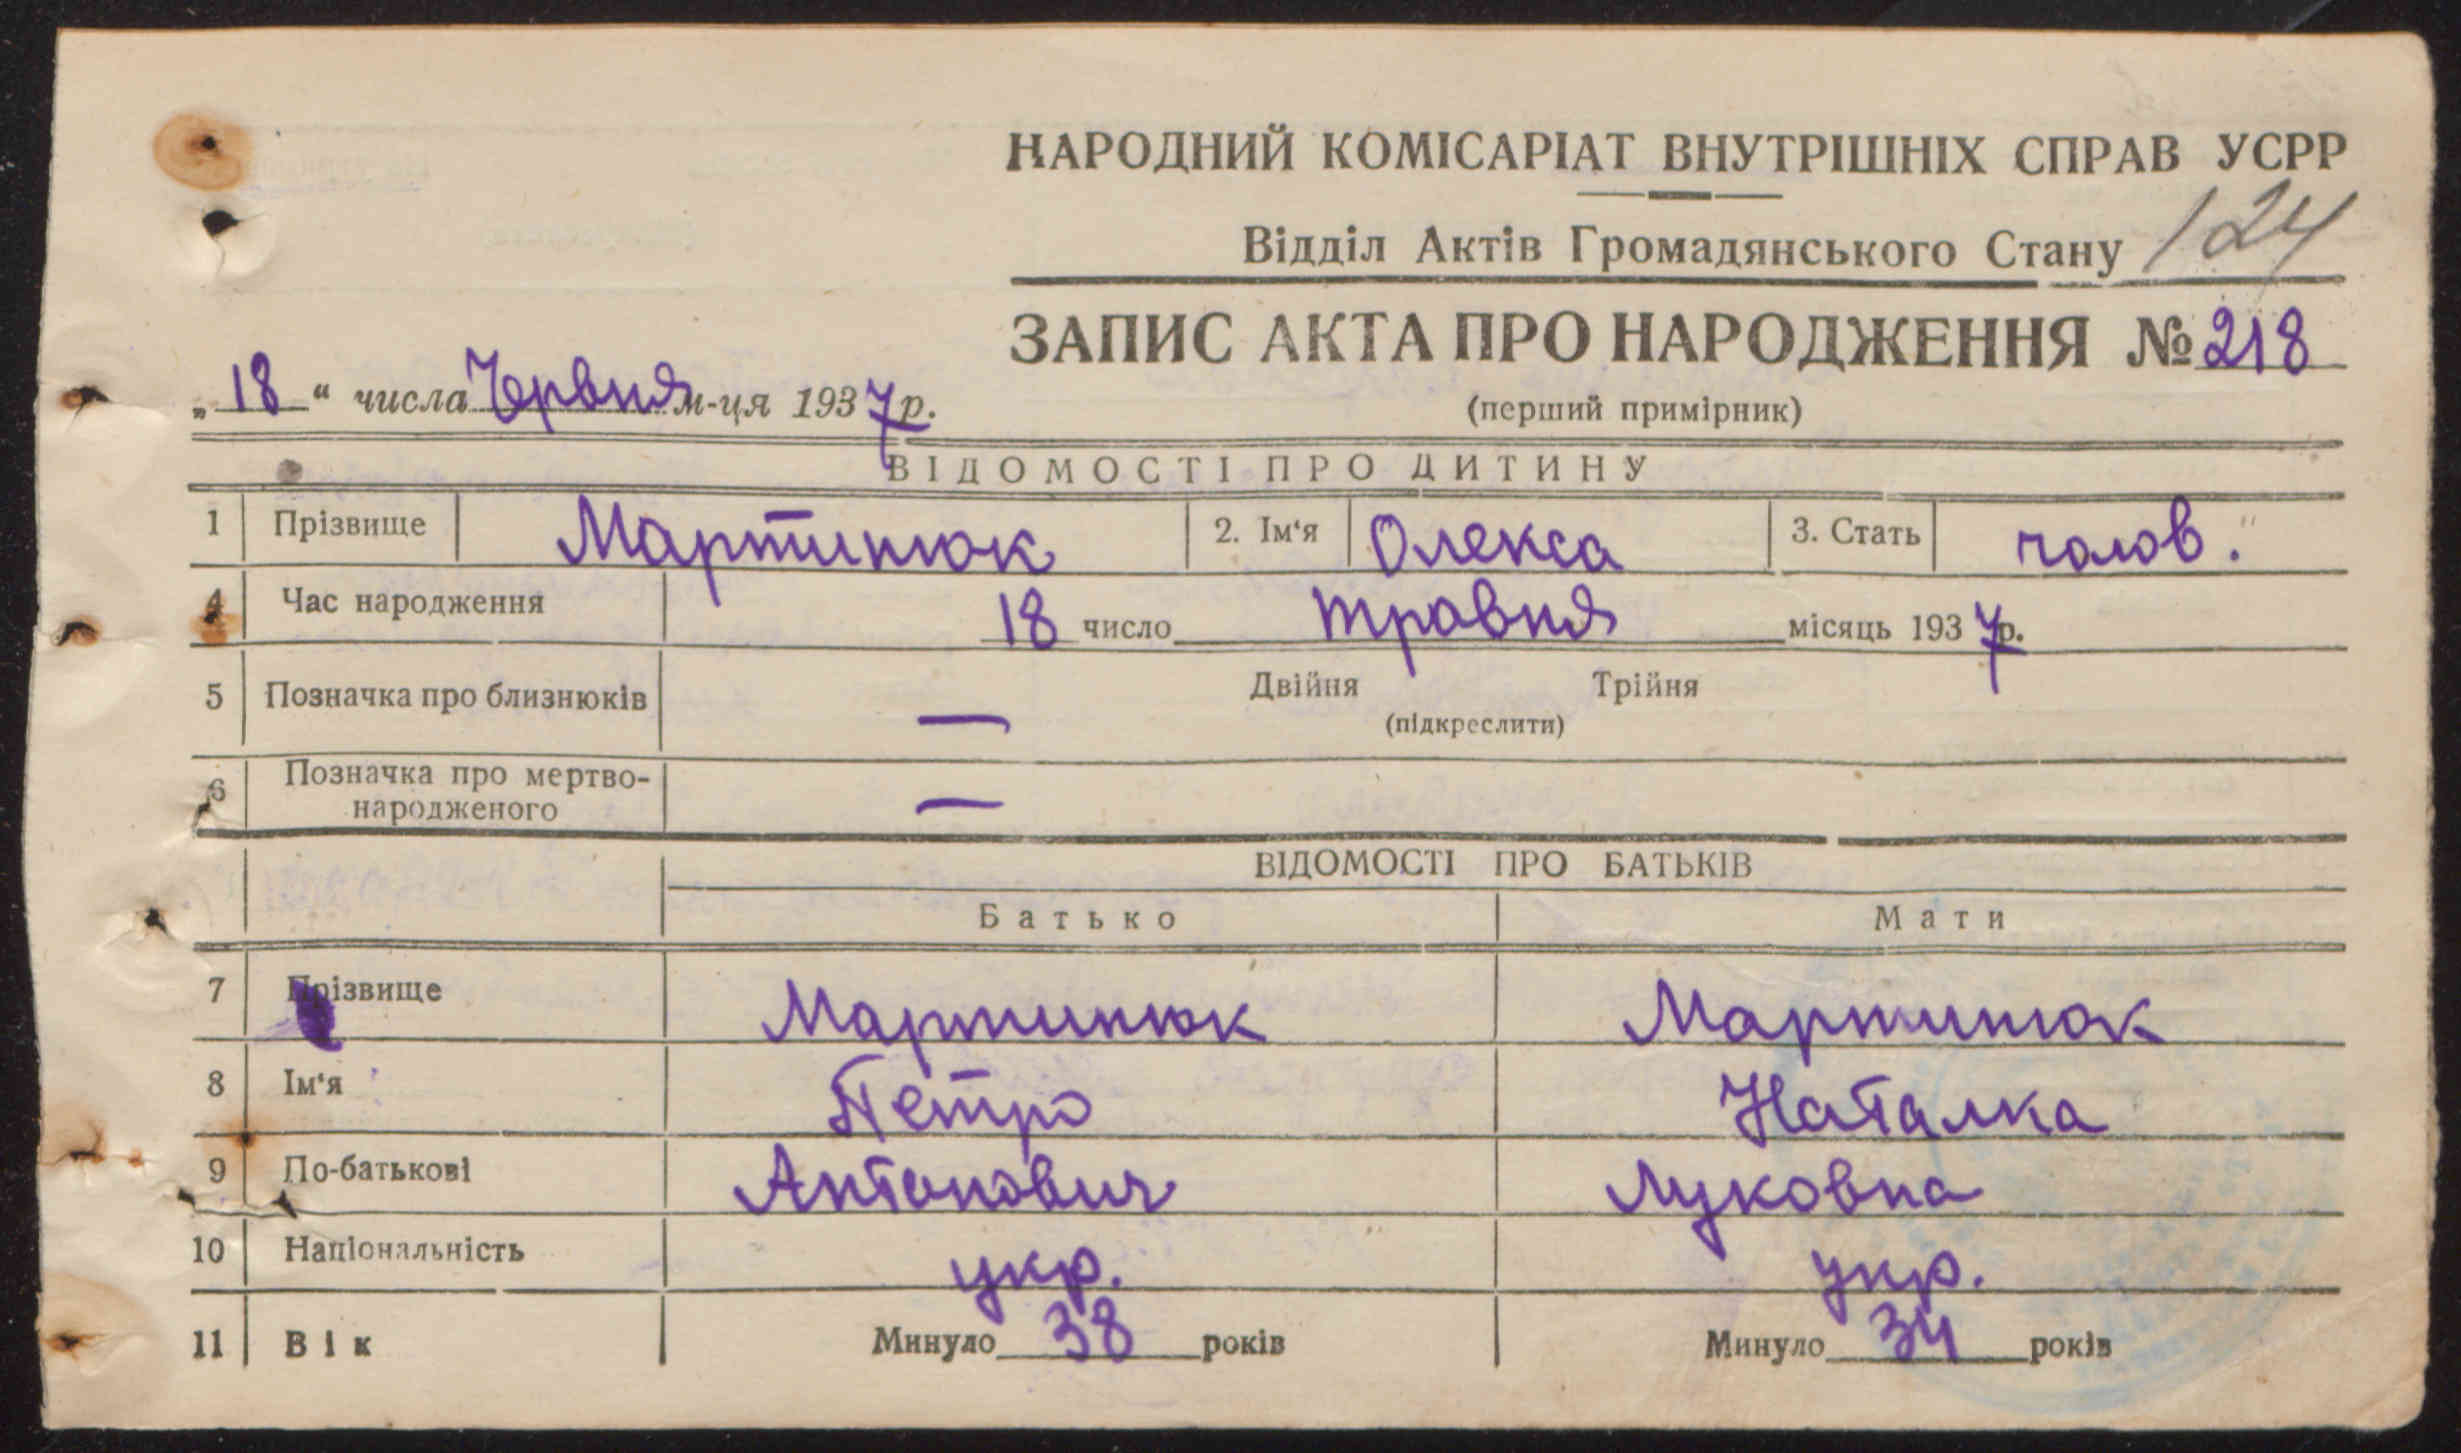 НАРОДНИЙ КОМІСАРІАТ ВНУТРІШНІХ СПРАВ УСРР
Відділ Актів Громадянського Стану 124
ЗАПИС АКТА ПРО НАРОДЖЕННЯ № 218
„18“ числа Червня м-ця 1937 р.
(перший примірник)
ВІДОМОСТІ ПРО ДИТИНУ
1 Прізвище Мартинюк 2. Ім‘я Олекса 3. Стать чолов.
4 Час народження 18 число травня місяць 1937 р.
5 Позначка про близнюків — Двійня Трійня
(підкреслити)
6 Позначка про мертво-
народженого —
ВІДОМОСТІ ПРО БАТЬКІВ
Батько Мати
7 Прізвище Мартинюк Мартинюк
8 Ім‘я Петро Наталка
9 По-батькові Антонович Луковна
10 Національність укр. укр.
11 Вік Минуло 38 років Минуло 34 років